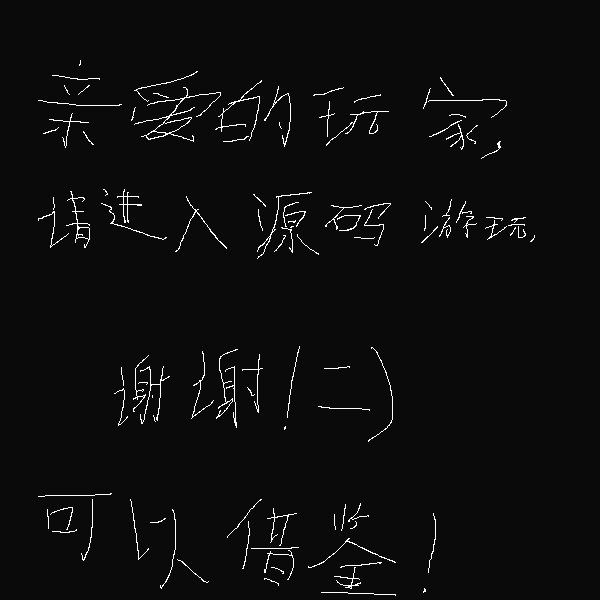 亲爱的玩家,
请进入源码游玩,
谢谢!二)
可以借鉴!